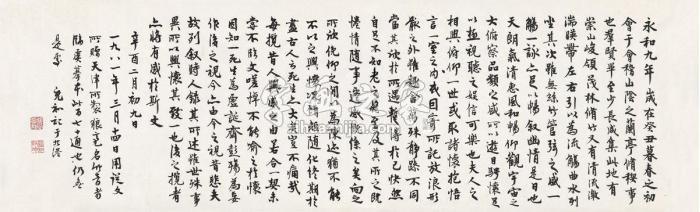 永和九年歲在癸丑暮春之初
會于會稽山陰之蘭亭脩稧事
也羣賢畢至少長咸集此地有
崇山峻領茂林脩竹又有清流激
湍暎帶左右引以為流觴曲水列
坐其次雖無絲竹管弦之盛一
觴一詠亦足以暢叙幽情是日也
天朗氣清惠風和暢仰觀宇宙之
大俯察品類之盛所以遊目騁懷足
以極視聽之娛信可樂也夫人之
相與俯仰一世或取諸懷抱悟
言一室之內或因寄所託放浪形
骸之外雖趣舍萬殊靜躁不同
當其欣於所遇蹔得於己快然
自足不知老之將至及其所之既
惓情隨事遷感慨係之矣向之
所欣俛仰之間以為陳迹猶不能
不以之興懷況脩短隨化終期於
盡古人云死生亦大矣豈不痛哉
每攬昔人興感之由若合一契未
甞不臨文嗟悼不能喻之於懷
固知一死生為虛誕齊彭殤為妄
作後之視今亦由今之視昔悲夫
故列叙時人錄其所述雖世殊事
異所以興懷其致一也後之攬者
亦將有感於斯文
辛酉二月初九日
一九八一年三月十四日用說文
所贈天津所製狼毫
臨虞摹本此百七十通也仍